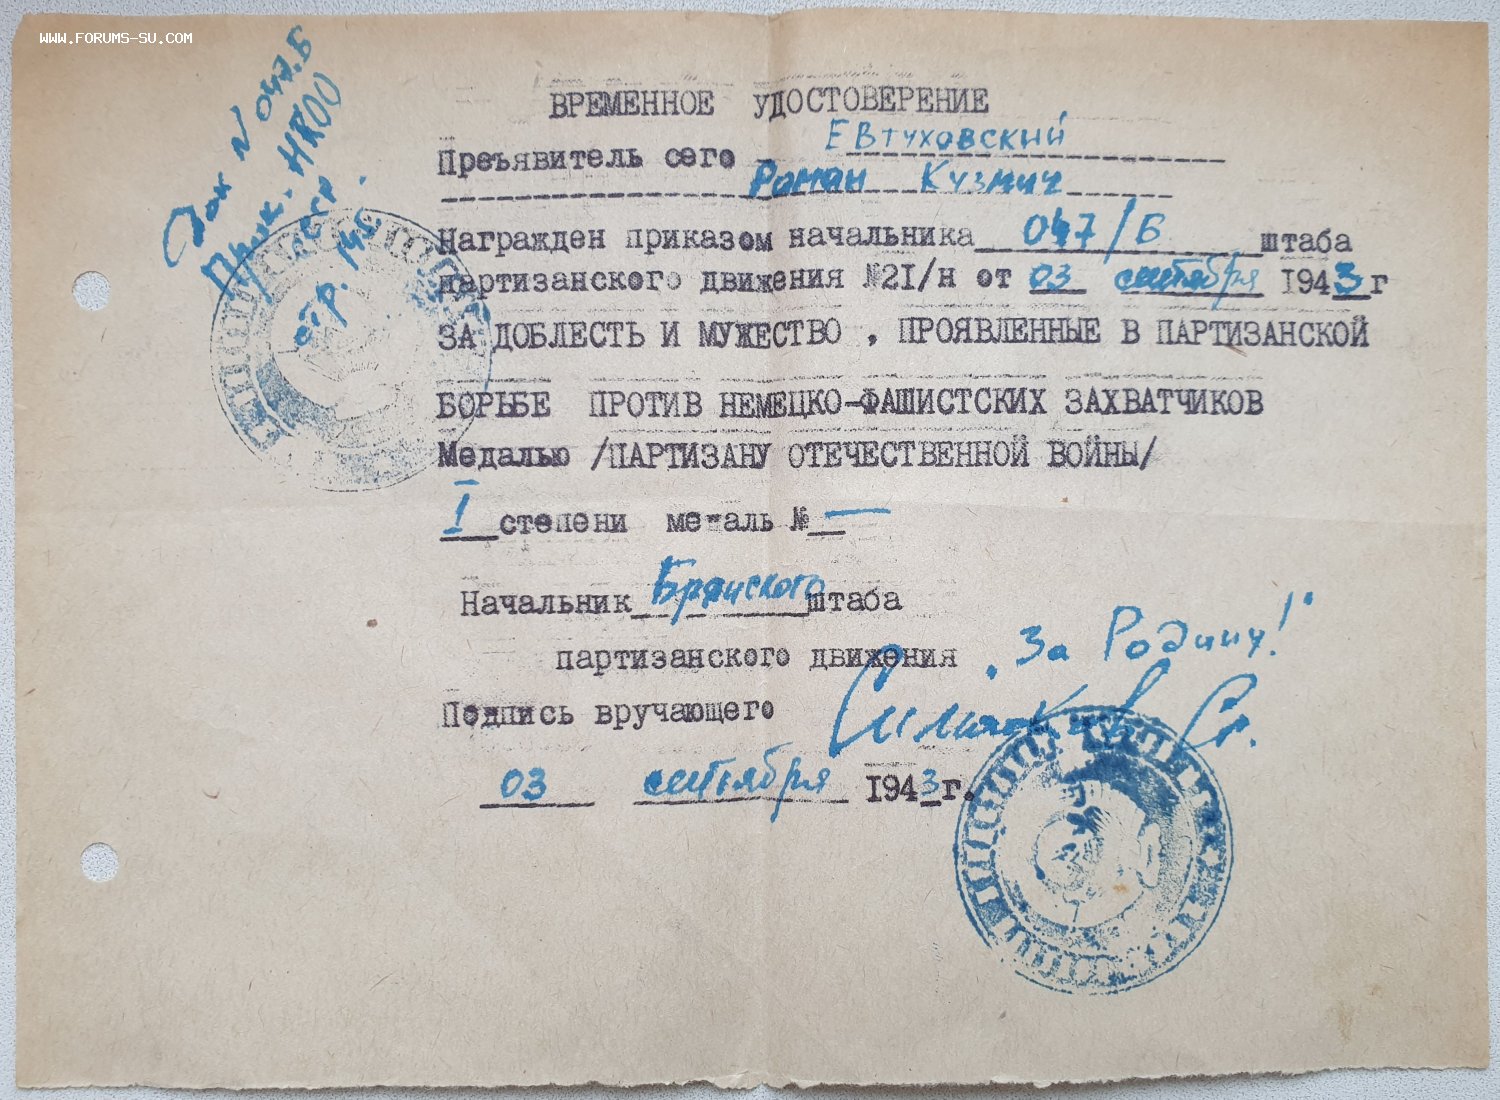 WWW.FORUMS-SU.COM
Док N 047.Б
НКОО
стр. 145.
ВРЕМЕННОЕ УДОСТОВЕРЕНИЕ
Преъявитель сего Евтуховский
Раман Кузмич
Награжден приказом начальника 047/Б штаба
партизанского движения №2I/н от 03 сентября I943 г
ЗА ДОБЛЕСТЬ И МУЖЕСТВО , ПРОЯВЛЕННЫЕ В ПАРТИЗАНСКОЙ
БОРЬБЕ ПРОТИВ НЕМЕЦКО-ФАШИСТСКИХ ЗАХВАТЧИКОВ
Медалью /ПАРТИЗАНУ ОТЕЧЕСТВЕННОЙ ВОЙНЫ/
I степени медаль № —
Начальник Брянского штаба
партизанского движения „За Родину!"
Подпись вручающего
03 сентября I943 г.